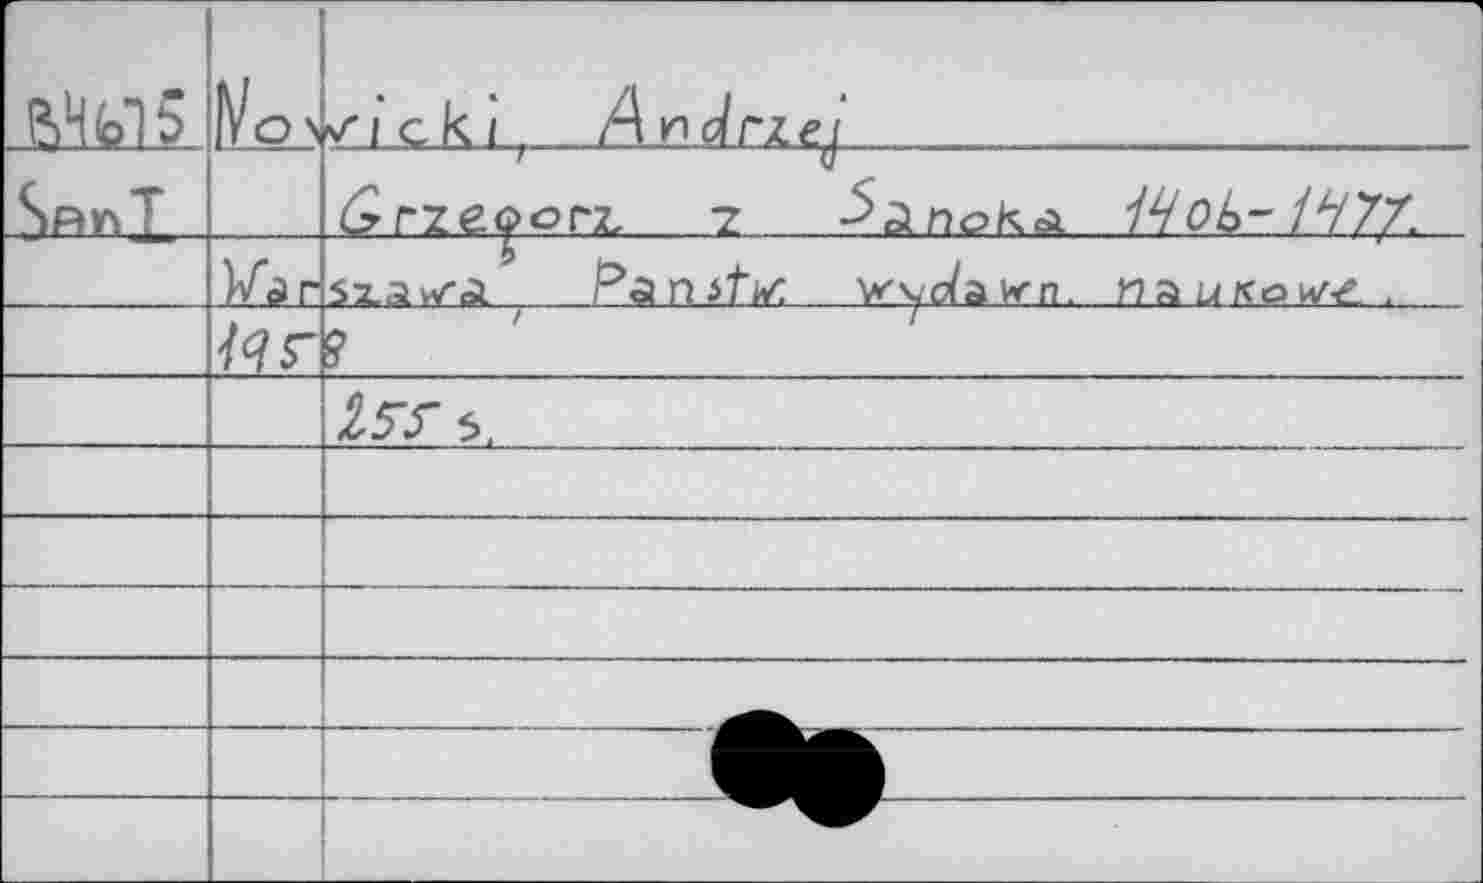 B4675 Nowicki, Andrzej
SanT Grzegorz z Sanoka 1406-1477.
Warszawa, Państw. wydawn. naukowe,
1958
255 s.